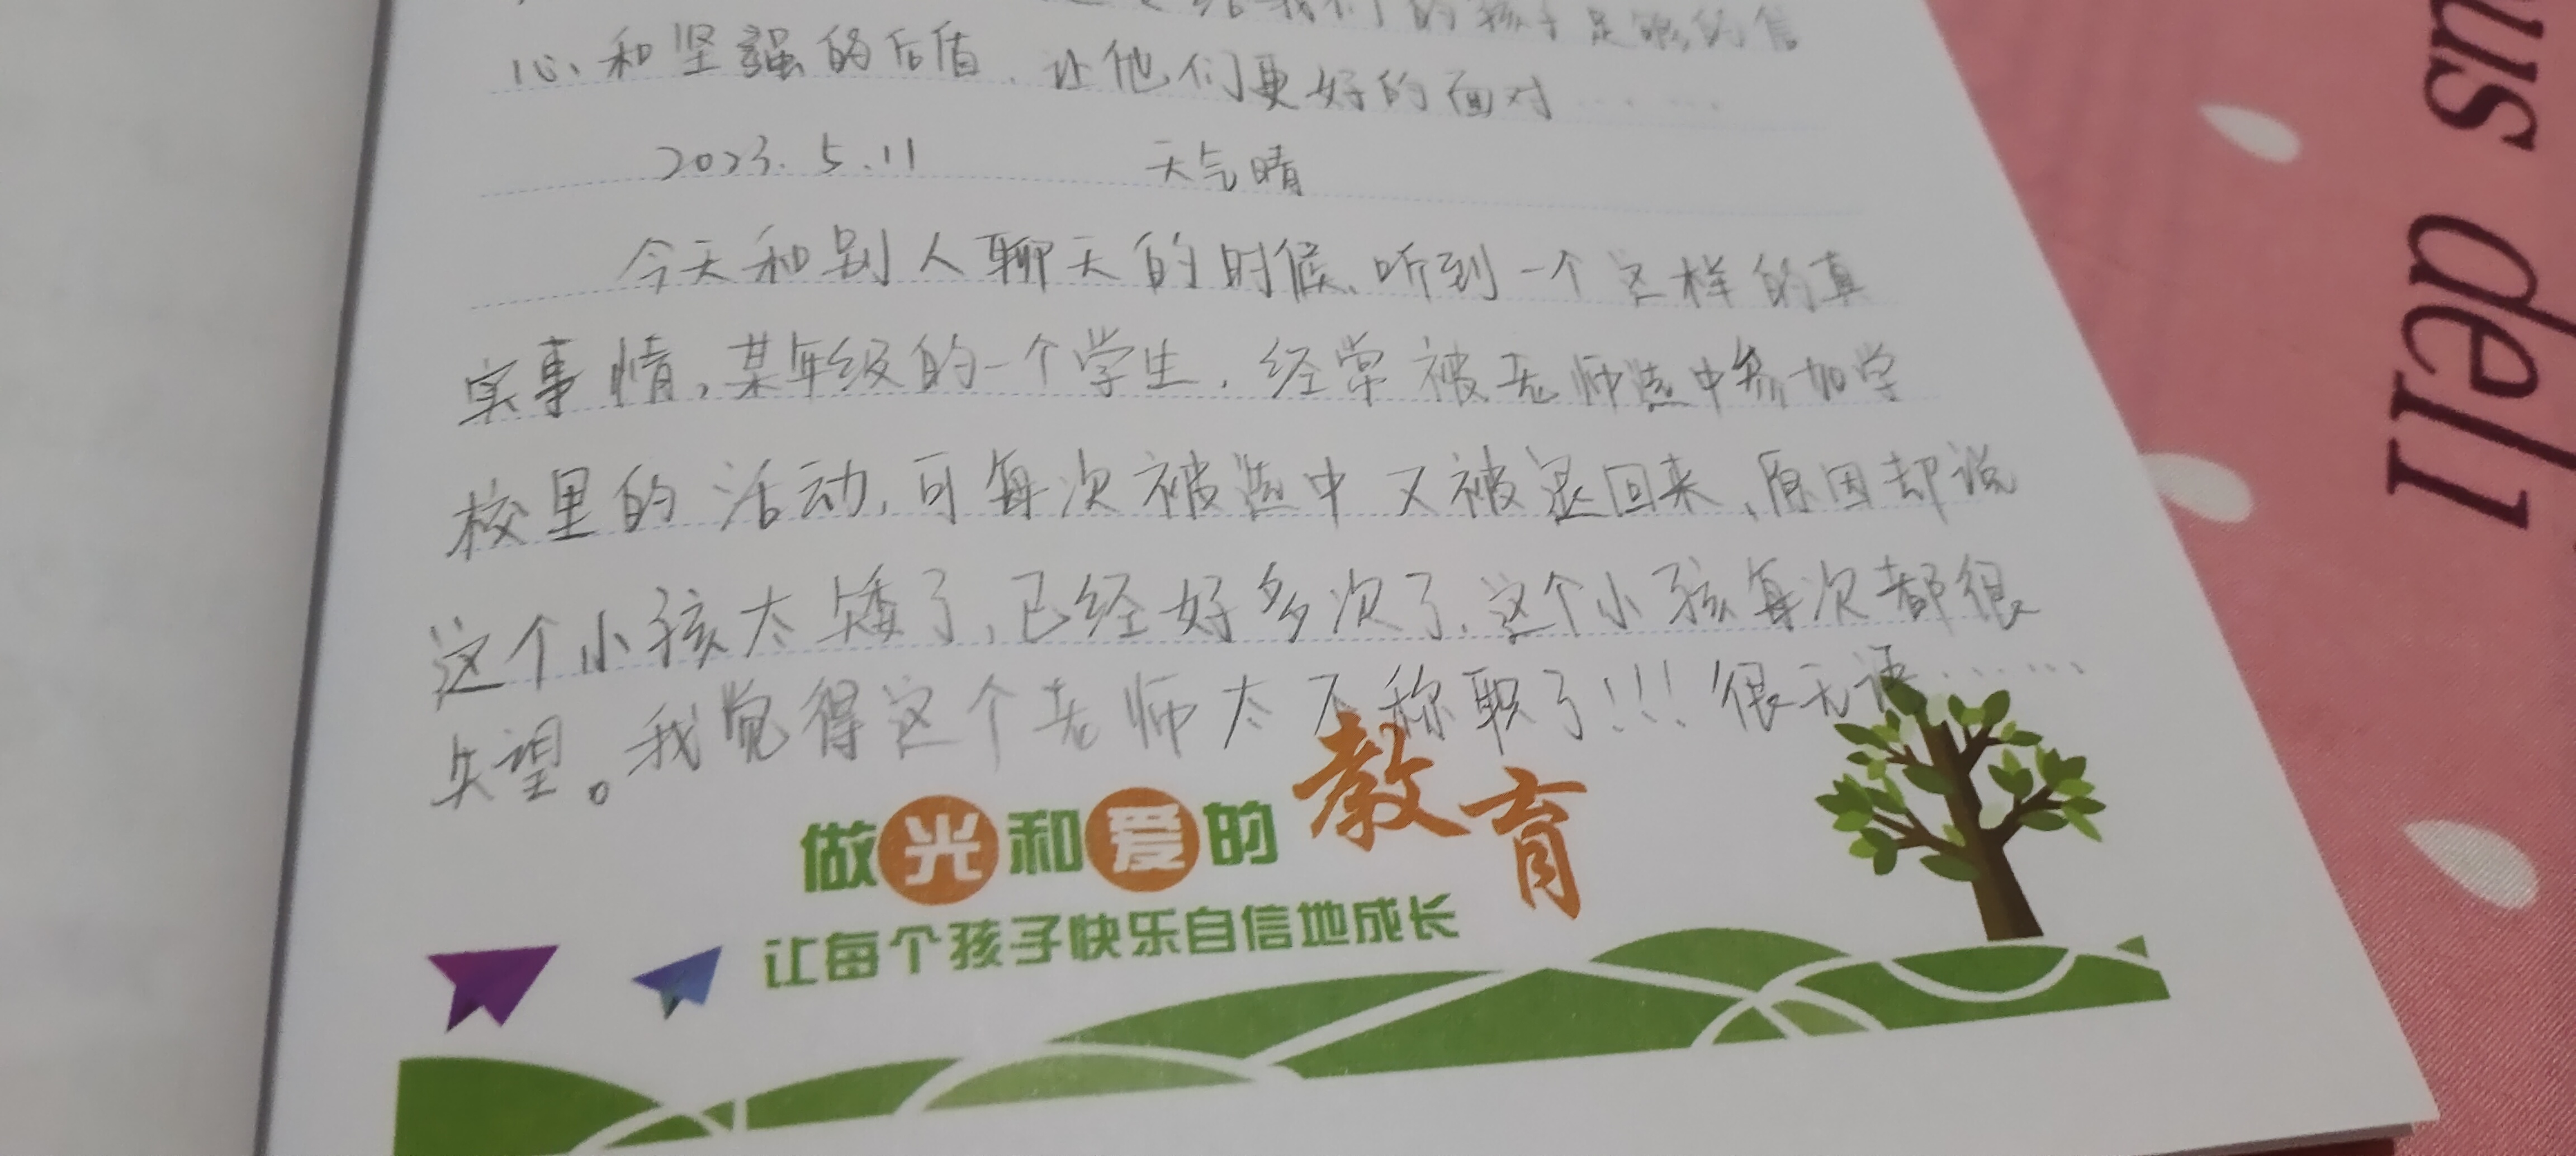 给我们的孩子足够的信
心和坚强的后盾，让他们更好的面对……
2023.5.11 天气晴
今天和别人聊天的时候、听到一个这样的真
实事情，某年级的一个学生，经常被老师选中参加学
校里的活动，可每次被选中又被退回来，原因却说
这个小孩太矮了，已经好多次了，这个小孩每次都很
失望。我觉得这个老师太不称职了!!!很无语……
做光和爱的教育
让每个孩子快乐自信地成长
us dell